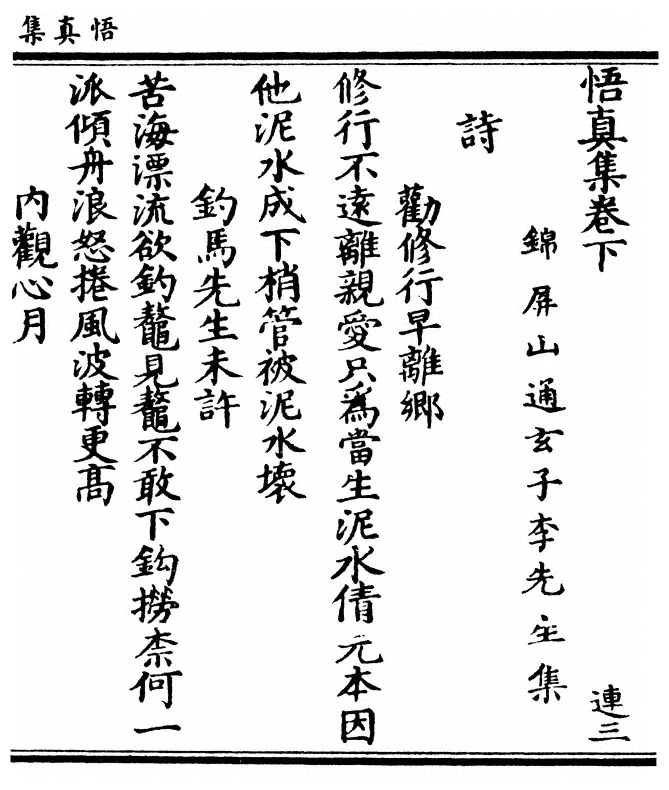 悟真集
悟真集卷下
連三
錦屏山通玄子李先生集
詩
勸修行早離鄉
修行不遠離親愛只為當生泥水倩元本因
他泥水成下梢管被泥水壞
釣馬先生未許
苦海漂流欲釣鼇見鼇不敢下鈎撈柰何一
派傾舟浪怒捲風波轉更高
內觀心月